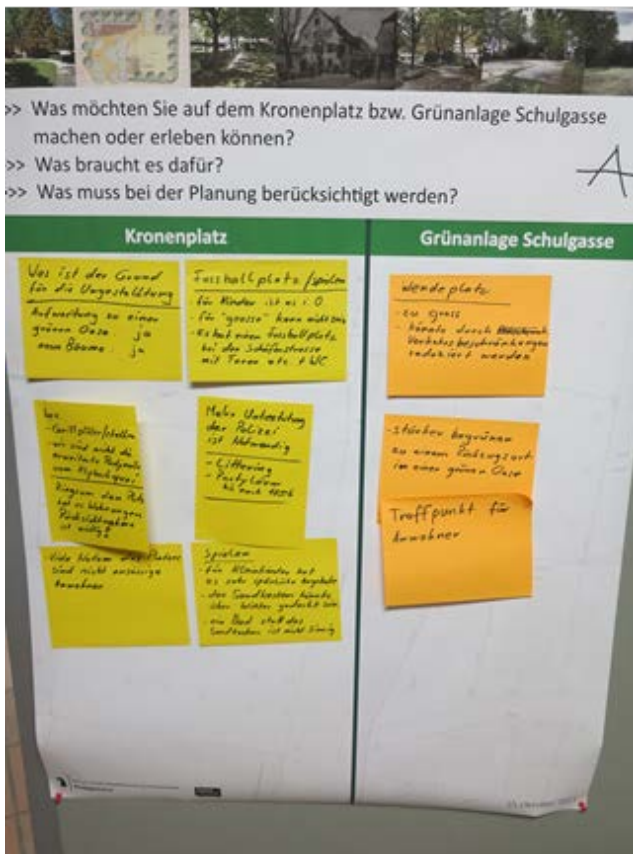 >> Was möchten Sie auf dem Kronenplatz bzw. Grünanlage Schulgasse
machen oder erleben können?
>> Was braucht es dafür?
>> Was muss bei der Planung berücksichtigt werden?
A
Kronenplatz
Was ist der Grund
für die Umgestaltung
Aufwertung zu einer
grünen Oase ja
neue Bäume ja
Fussballplatz/spielen
für Kinder ist es i.O
für "grosse" kann nicht sein
Es hat einen Fussballplatz
bei der Schäferstrasse
mit Toren etc. + WC
- Grillplätze/stellen
wir sind nicht die
vom
Ringsum den Platz
hat es Wohnungen
Rücksichtnahme
ist nötig!
Mehr Unterstützung
der Polizei
ist Notwendig
- Littering
- Partylärm
bis nach
Viele Nutzer des Platzes
sind nicht ansässige
Anwohner
Spielen
- für Kleinkinder hat
es sehr spärliche Angebote
- der Sandkasten könnte
über Winter gedeckt sein
- ein statt des
Sandkasten ist nicht sinnig
Grünanlage Schulgasse
Wendeplatz
- zu gross
- könnte durch
Verkehrsbeschränkungen
reduziert werden
- stärker begrünen
zu einem Rückzugsort
in einer grünen Oase
Treffpunkt für
Anwohner